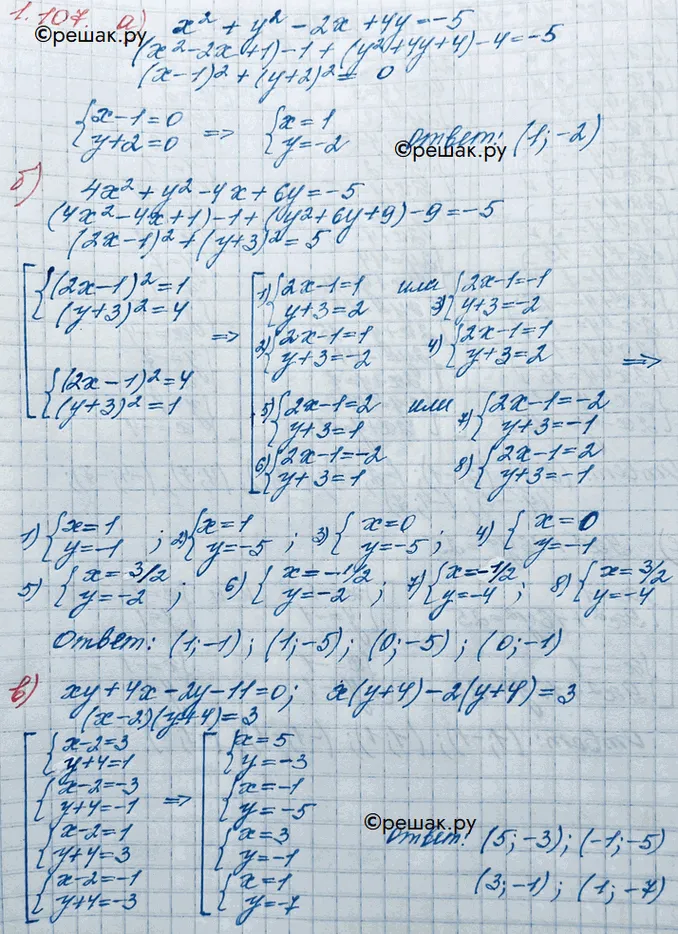 1.107. а) x² + y² - 2x + 4y = -5
©решак.ру
(x² - 2x + 1) - 1 + (y² + 4y + 4) - 4 = -5
(x-1)² + (y+2)² = 0
{x-1=0 y+2=0 => {x=1 y=-2 Ответ: (1; -2)
©решак.ру
б) 4x² + y² - 4x + 6y = -5
(4x² - 4x + 1) - 1 + (y² + 6y + 9) - 9 = -5
(2x-1)² + (y+3)² = 5
[{(2x-1)² = 1 (y+3)² = 4
{(2x-1)² = 4 (y+3)² = 1
=>
[1) {2x-1=1 y+3=2 или 3) {2x-1=-1 y+3=-2
2) {2x-1=1 y+3=-2 4) {2x-1=1 y+3=2
=>
5) {2x-1=2 y+3=1 или 7) {2x-1=-2 y+3=-1
6) {2x-1=-2 y+3=1 8) {2x-1=2 y+3=-1
1) {x=1 y=-1 ; 2) {x=1 y=-5 ; 3) {x=0 y=-5 ; 4) {x=0 y=-1
5) {x=3/2 y=-2 ; 6) {x=-1/2 y=-2 ; 7) {x=-1/2 y=-4 ; 8) {x=3/2 y=-4
Ответ: (1; -1) ; (1; -5) ; (0; -5) ; (0; -1)
в) xy + 4x - 2y - 11 = 0; x(y+4) - 2(y+4) = 3
(x-2)(y+4) = 3
[{x-2=3 y+4=1
{x-2=-3 y+4=-1
{x-2=1 y+4=3
{x-2=-1 y+4=-3
=>
[{x=5 y=-3
{x=-1 y=-5
{x=3 y=-1
{x=1 y=-7
©решак.ру
Ответ: (5; -3); (-1; -5)
(3; -1) ; (1; -7)